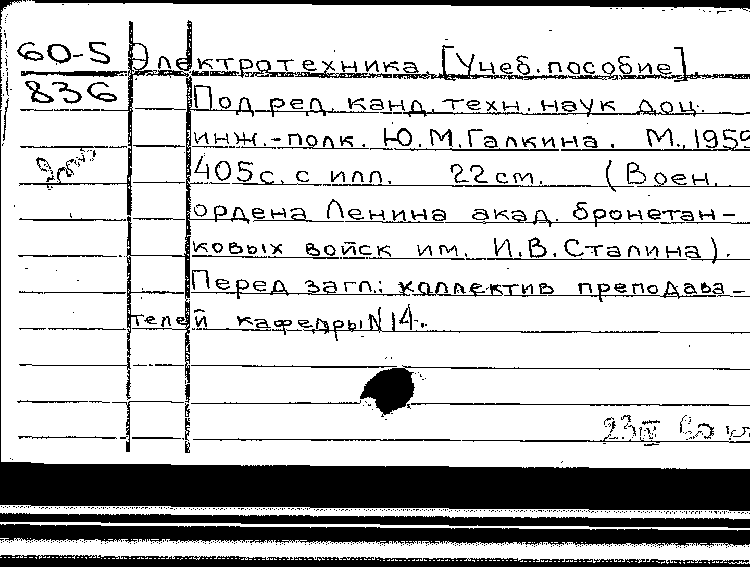 60-5 Электротехника. [Учеб. пособие].
836 Под ред. канд. техн. наук доц.
инж.-полк. Ю.М.Галкина. М., 1959
405с. с илл. 22 см. (Воен.
ордена Ленина акад. бронетан-
ковых войск им. И.В.Сталина).
Перед загл.: коллектив преподава-
телей кафедры N 14.
23 IV